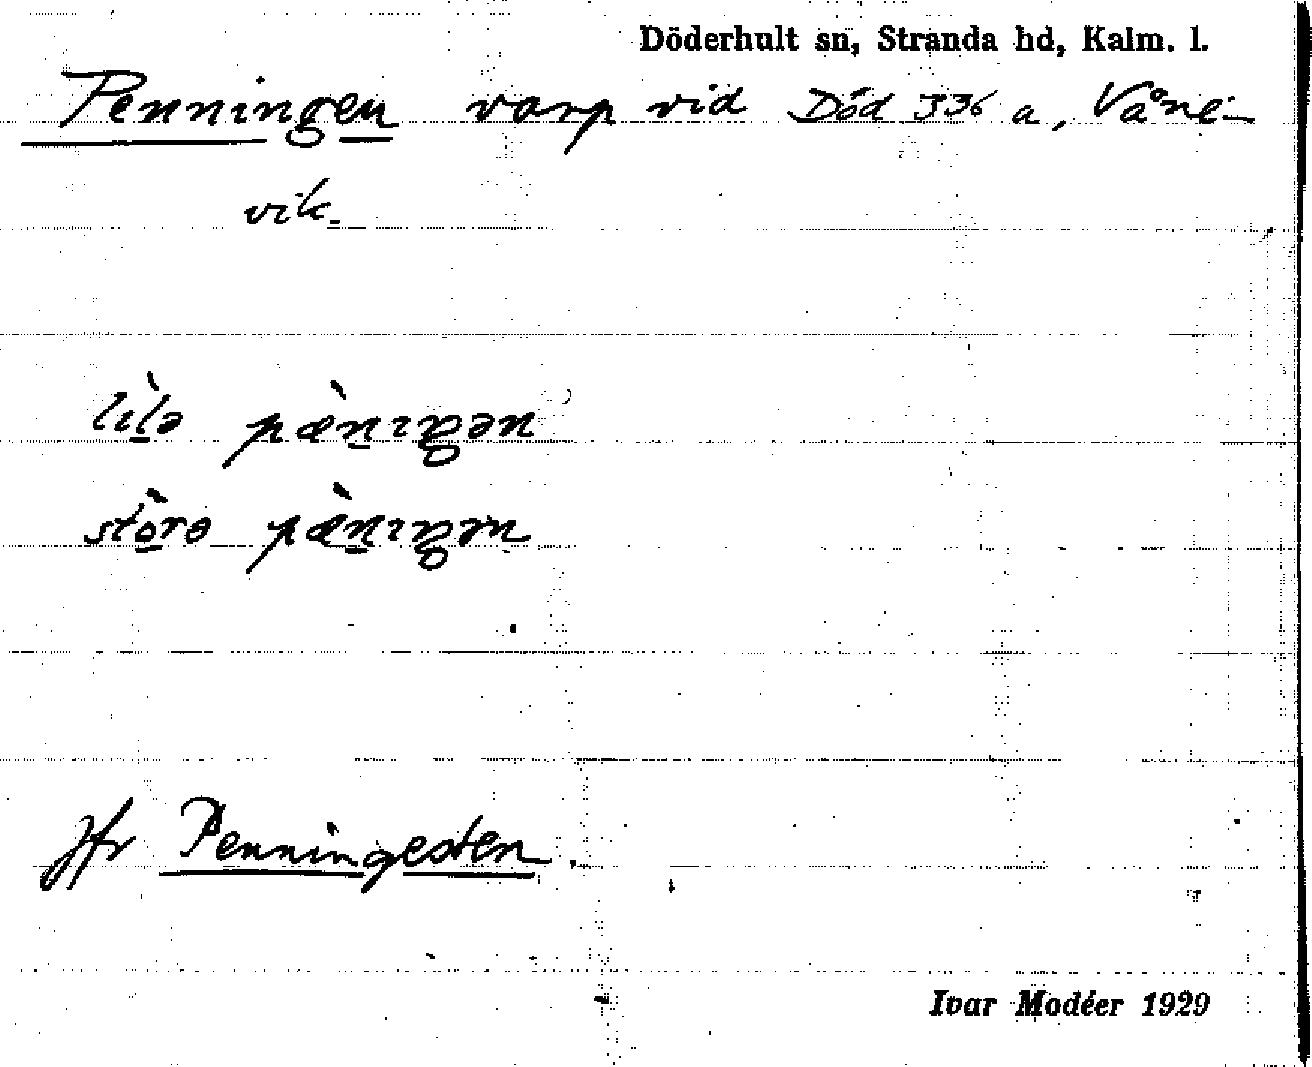 Döderhult sn, Stranda hd, Kalm. l.
Penningen varp vid Död 336 a, Våne-
vik.
lìlə pæ̀nıgən
stòrə pæ̀nıgən
Jfr Penningesten.
Ivar Modéer 1929